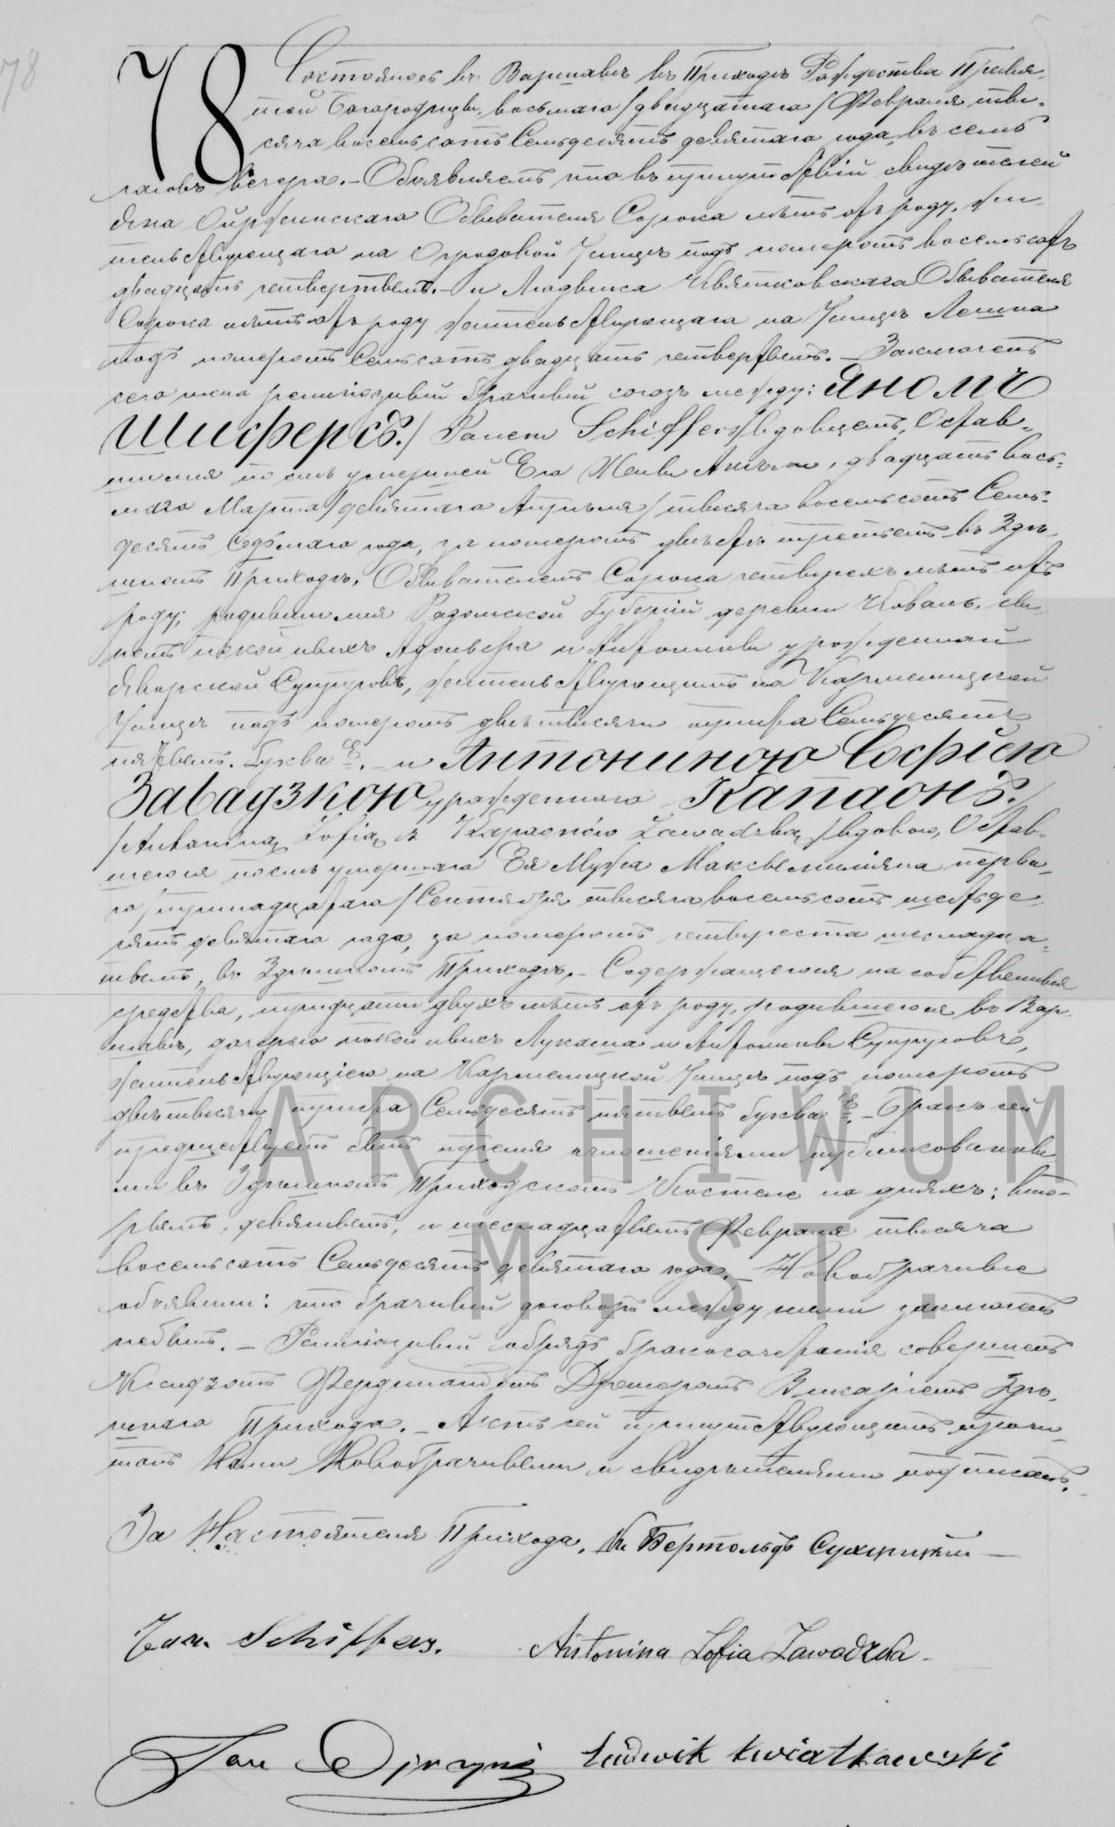 78
78 Состоялось въ Варшавѣ въ Приходѣ Рождества Пресвя-
той Богородицы, восьмаго /двадцатаго/ Февраля ты-
сяча восемьсотъ Семьдесятъ девятаго года, въ семь
часовъ вечера. - Объявляемъ что въ присутствіи свидѣтелей
Яна Обывателя Сорока лѣтъ отъ роду, жи-
тельствующаго на Огродовой Улицѣ подъ номеромъ восемьсотъ
двадцать четвертымъ. - и Людвика Квятковскаго Обывателя
Сорока лѣтъ отъ роду жительствующаго на Улицѣ Лешна
подъ номеромъ Семьсотъ двадцать четвертымъ. - Заключенъ
сего числа религіозный брачный союзъ между: Яномъ
Шифферсъ./ Janem Schiffers/ вдовцемъ, Остав-
шимся послѣ умершей Его Жены, двадцать вось-
маго Марта /девятаго Апрѣля/ тысяча восемьсотъ Семь-
десятъ Седьмаго года, за номеромъ двѣсти третьемъ въ Здѣ-
шнемъ Приходѣ, Обывателемъ Сорока четырехъ лѣтъ отъ
роду, родившимся Радомской Губерніи деревни Коваль, сы-
номъ покойныхъ и Антонины урожденной
Яворской Супруговъ, жительствующимъ на Кармелицкой
Улицѣ подъ номеромъ двѣ тысячи триста Семьдесятъ
пятымъ. буква Е. - и Антониною Софіею
Завадзкою урожденною Капаонъ./
/Antoniną Zofią z Kapaonów Zawadzką/ вдовою, Остав-
шеюся послѣ умершаго Ея Мужа Максымиліяна перва-
го /тринадцатаго/ Сентября тысяча восемьсотъ шестьде-
сятъ девятаго года, за номеромъ четыреста шеснадца-
тымъ, въ Здѣшнемъ Приходѣ. - Содержащеюся на собственныя
средства, тридцати двухъ лѣтъ отъ роду, родившеюся въ Вар-
шавѣ, дочерью покойныхъ Лукаша и Антонины Супруговъ,
жительствующею на Кармелицкой Улицѣ подъ номеромъ
двѣ тысячи триста Семьдесятъ пятымъ буква Е. - Бракъ сей
предшествуемъ былъ тремя оглашеніями публикованны-
ми въ Здѣшнемъ Приходскомъ Костелѣ по дняхъ: вто-
рымъ, девятымъ, и шеснадцатымъ Февраля тысяча
восемьсотъ Семьдесятъ девятаго года. - Новобрачные
объявили: что брачный договоръ между ними заключенъ
небылъ. - Религіозный обрядъ бракосочетанія совершенъ
Ксендзомъ Фердинандомъ Викаріемъ Здѣ-
шняго Прихода. - Актъ сей присутствующимъ прочи-
танъ Нами Новобрачными и свидѣтелями подписанъ.
За Настоятеля Прихода. Кс. Бертольдъ
Jan Schiffers. Antonina Zofia Zawadzka
Jan Ludwik Kwiatkowski
ARCHIWUM
M. ST.